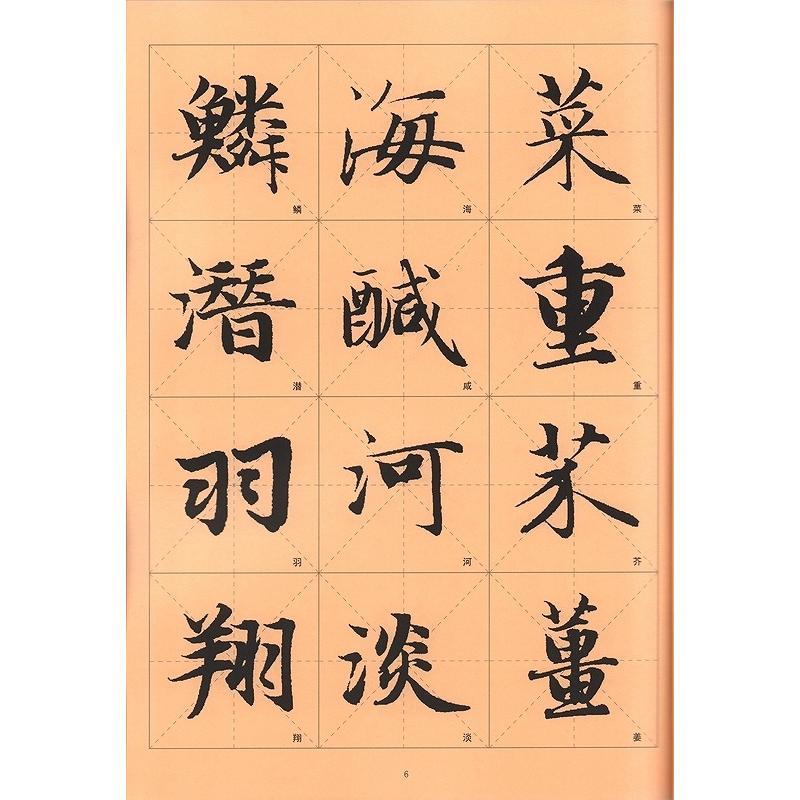 菜重芥薑
菜 重 芥 姜
海醎河淡
海 咸 河 淡
鱗潛羽翔
鳞 潜 羽 翔
6